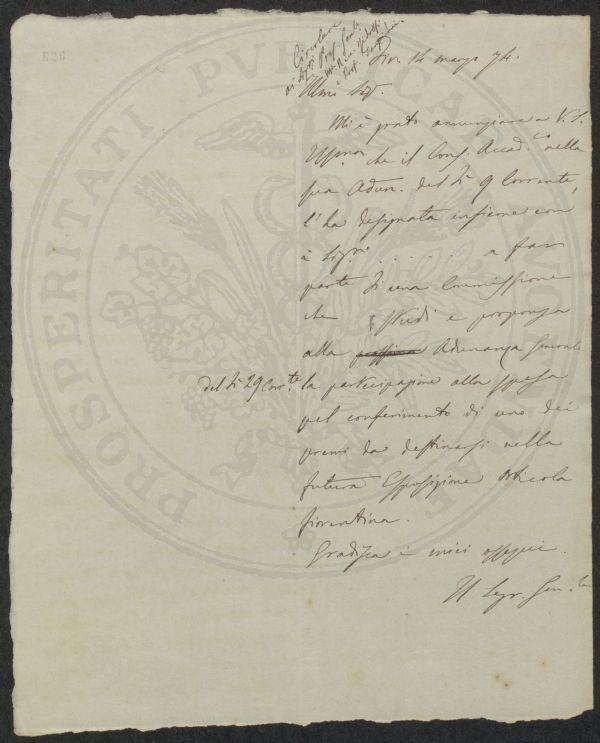 Circolare
ai Sigri Prof.
e Prof.
Fir. 14 marzo 74.
Illmo Sigr.
Mi è grato annunziare a V. S.
Illma che il Cons. Accad.co nella
sua Adun. del dì 9 Corrente,
l'ha designata insieme con
i Sigri . . . . . . a far
parte di una Commissione
che studi e proponga
alla Adunanza Generale
del dì 29 Corr.te la partecipazione alla spesa
pel conferimento di uno dei
premi da destinarsi nella
futura Esposizione Orticola
fiorentina.
Gradisca i miei ossequi.
Il Segr. Gen.le
PROSPERITATI PUBLICAE